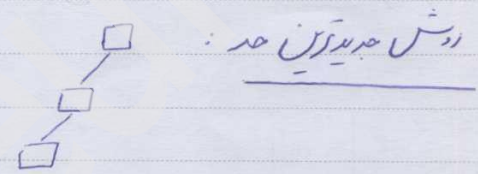 روش جدیدترین حد :